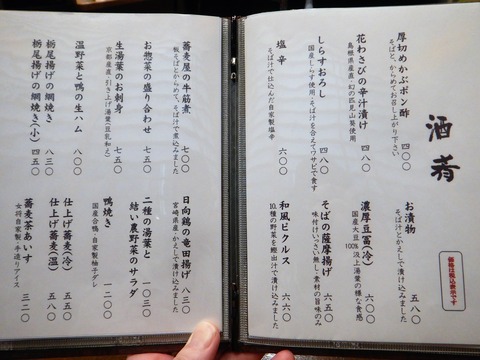 酒肴
厚切めかぶポン酢 四〇〇
そばと、からめてお召し上がり下さい
花わさびの辛汁漬け 四八〇
島根県産直・幻の匹見山葵使用
しらすおろし 四八〇
国産しらす使用・そば汁を合えてワサビで食す
塩辛 六〇〇
そば汁で仕込んだ自家製塩辛
お漬物 五八〇
そば汁とかえしで漬け込みました
濃厚豆冨(冷) 六〇〇
国産大豆100%汲上湯葉の様な食感
そばの薩摩揚げ 六五〇
味付けいっさい無し・素材の旨味のみ
和風ピクルス 六六〇
10種の野菜を鰹出汁で漬け込みました
価格は税込表示です
蕎麦屋の牛筋煮 七〇〇
板そばとからめて。そば汁で煮込みました
お惣菜の盛り合わせ 七五〇
生湯葉のお刺身 七五〇
京都産直・引き上げ湯葉(豆乳和え)
温野菜と鴨の生ハム 八〇〇
栃尾揚げの網焼き 八三〇
栃尾揚げの網焼き(小) 四五〇
日向鶏の竜田揚げ 八三〇
宮崎県産・かえしで漬け込みました
二種の湯葉と
結い農野菜のサラダ 一〇三〇
鴨焼き 一〇八〇
国産合鴨・自家製柚子ダレ
仕上げ蕎麦(冷) 五五〇
仕上げ蕎麦(温) 五八〇
蕎麦茶あいす 三二〇
女将自家製・手造りアイス